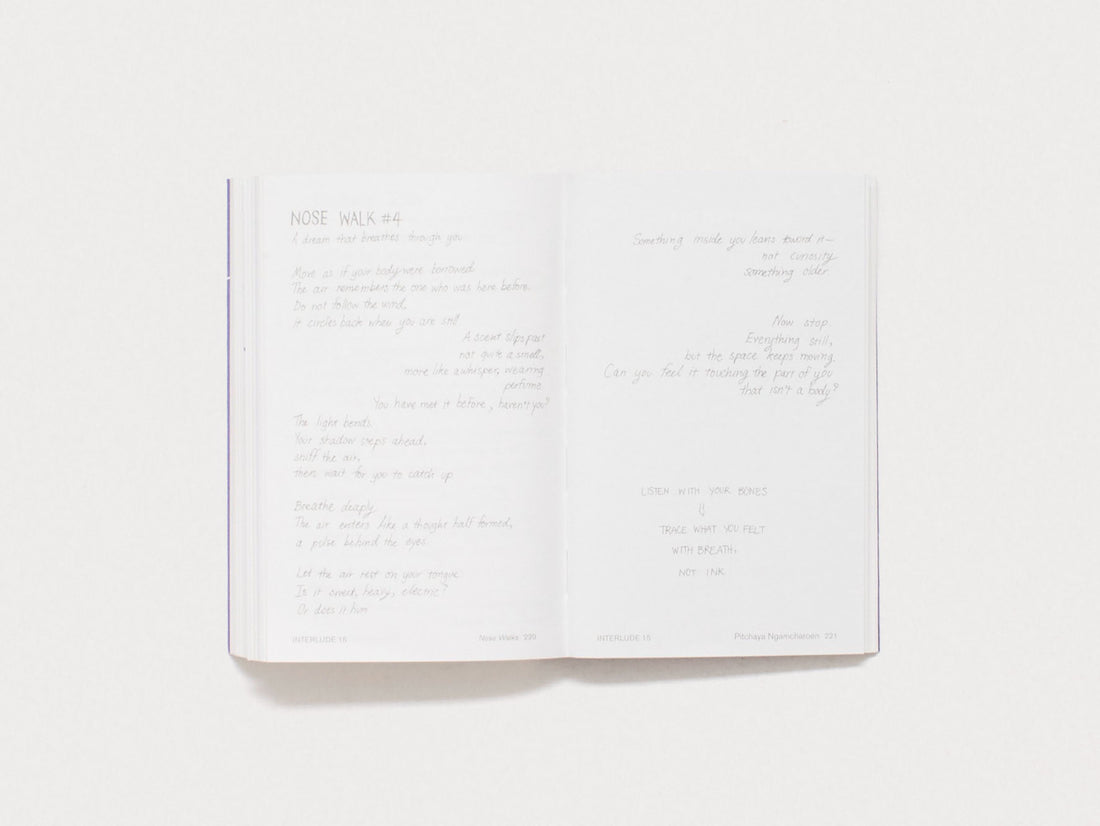 NOSE WALK #4
A dream that breathes through you
Move as if your body were borrowed.
The air remembers the one who was here before.
Do not follow the wind.
it circles back when you are still
A scent slips past
not quite a smell,
more like a whisper, wearing
perfume.
You have met it before, haven't you?
The light bends.
Your shadow steps ahead,
sniff the air,
then wait for you to catch up
Breathe deeply
The air enters like a thought half formed,
a pulse behind the eyes.
Let the air rest on your tongue
Is it sweet, heavy, electric?
Or does it hum
INTERLUDE 15
Nose Walks 220
Something inside you leans toward it—
not curiosity
something older.
Now stop
Everything still,
but the space keeps moving.
Can you feel it touching the part of you
that isn't a body?
LISTEN WITH YOUR BONES
TRACE WHAT YOU FELT
WITH BREATH,
NOT INK
INTERLUDE 15
Pitchaya Ngamcharoen 221